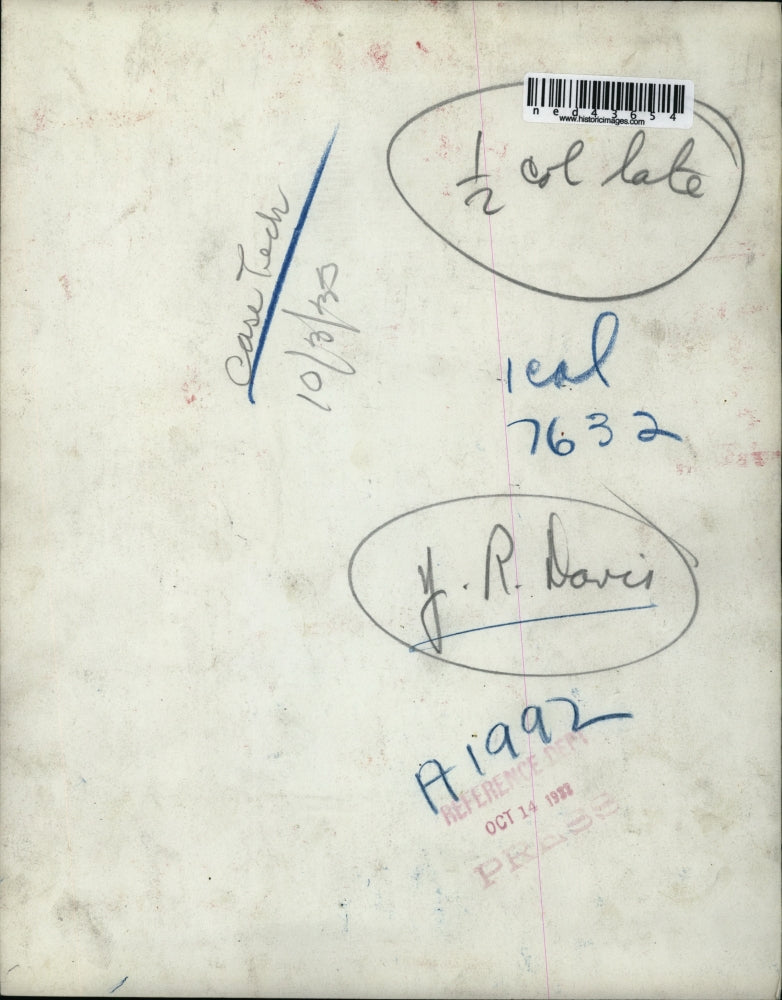 ned43654
www.historicimages.com
1/2 col late
Case Tech
10/3/35
1 col
7632
Y. R. Davis
A1992
REFERENCE DEPT
OCT 14 1938
PRESS